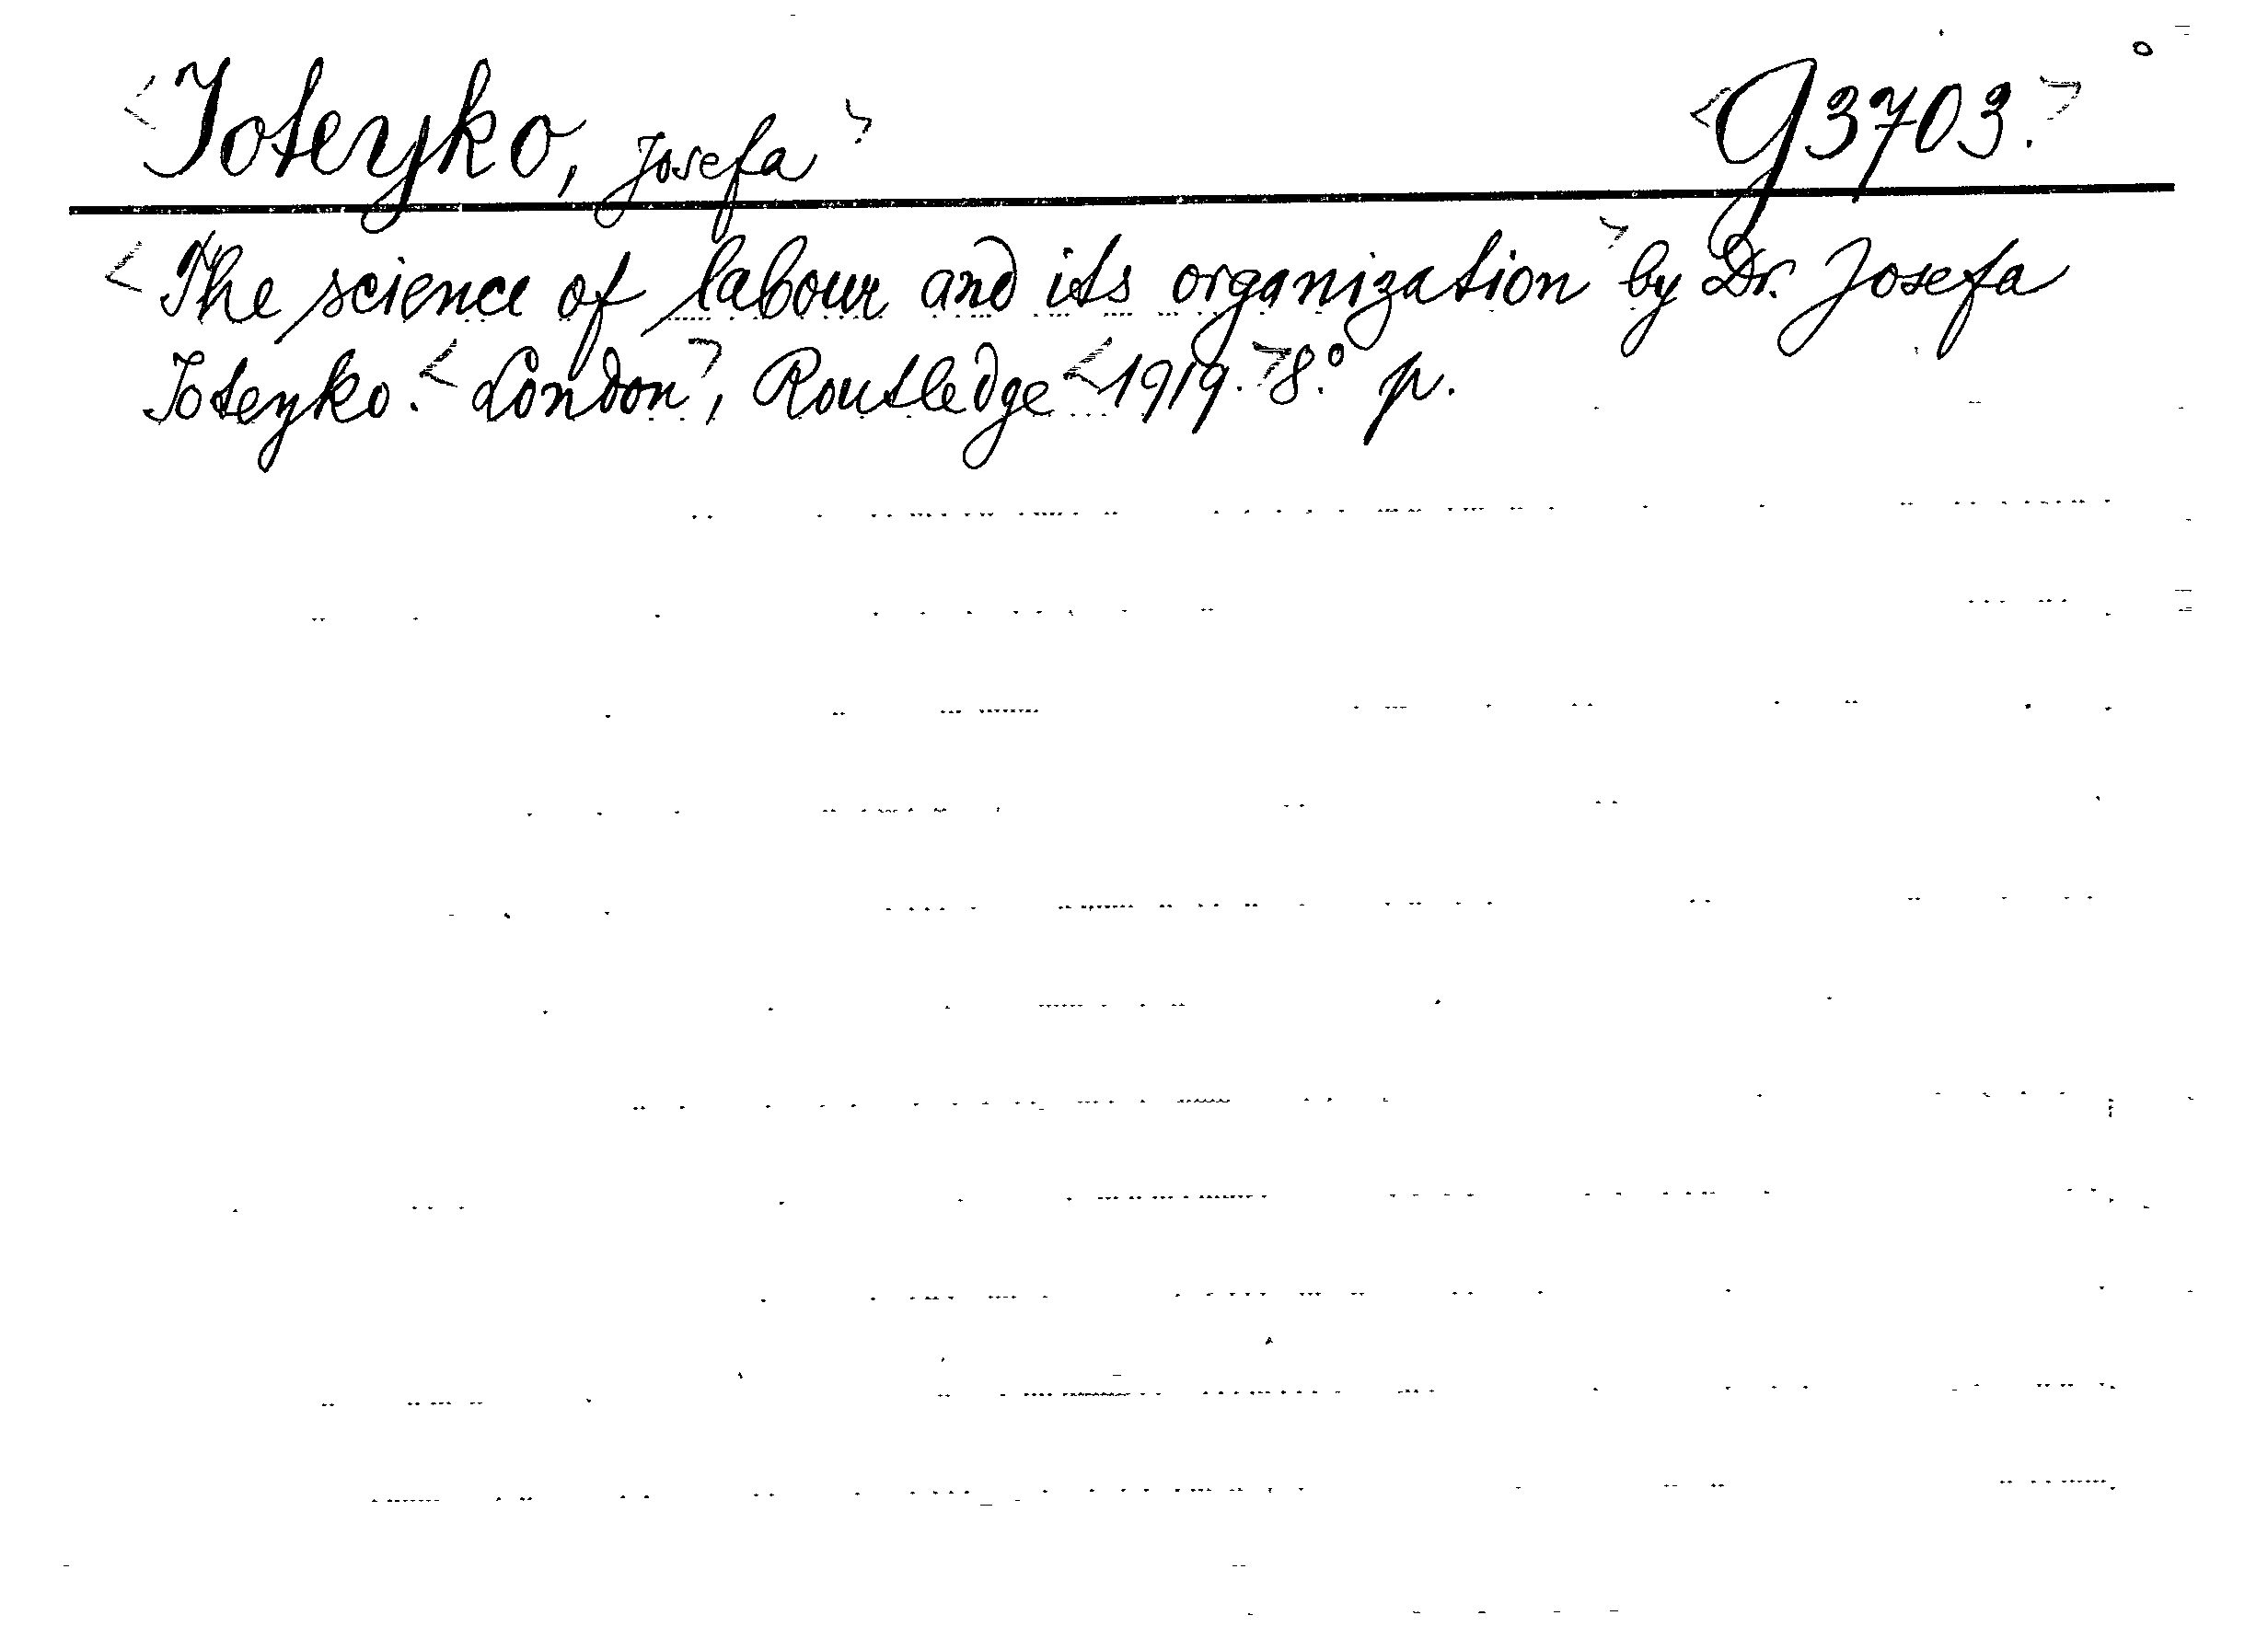 <Ioteyko, Josefa> <G3703.>
<The science of labour and its organization> by Dr. Josefa
Ioteyko. <London>, Routledge <1919.> 8.° p.